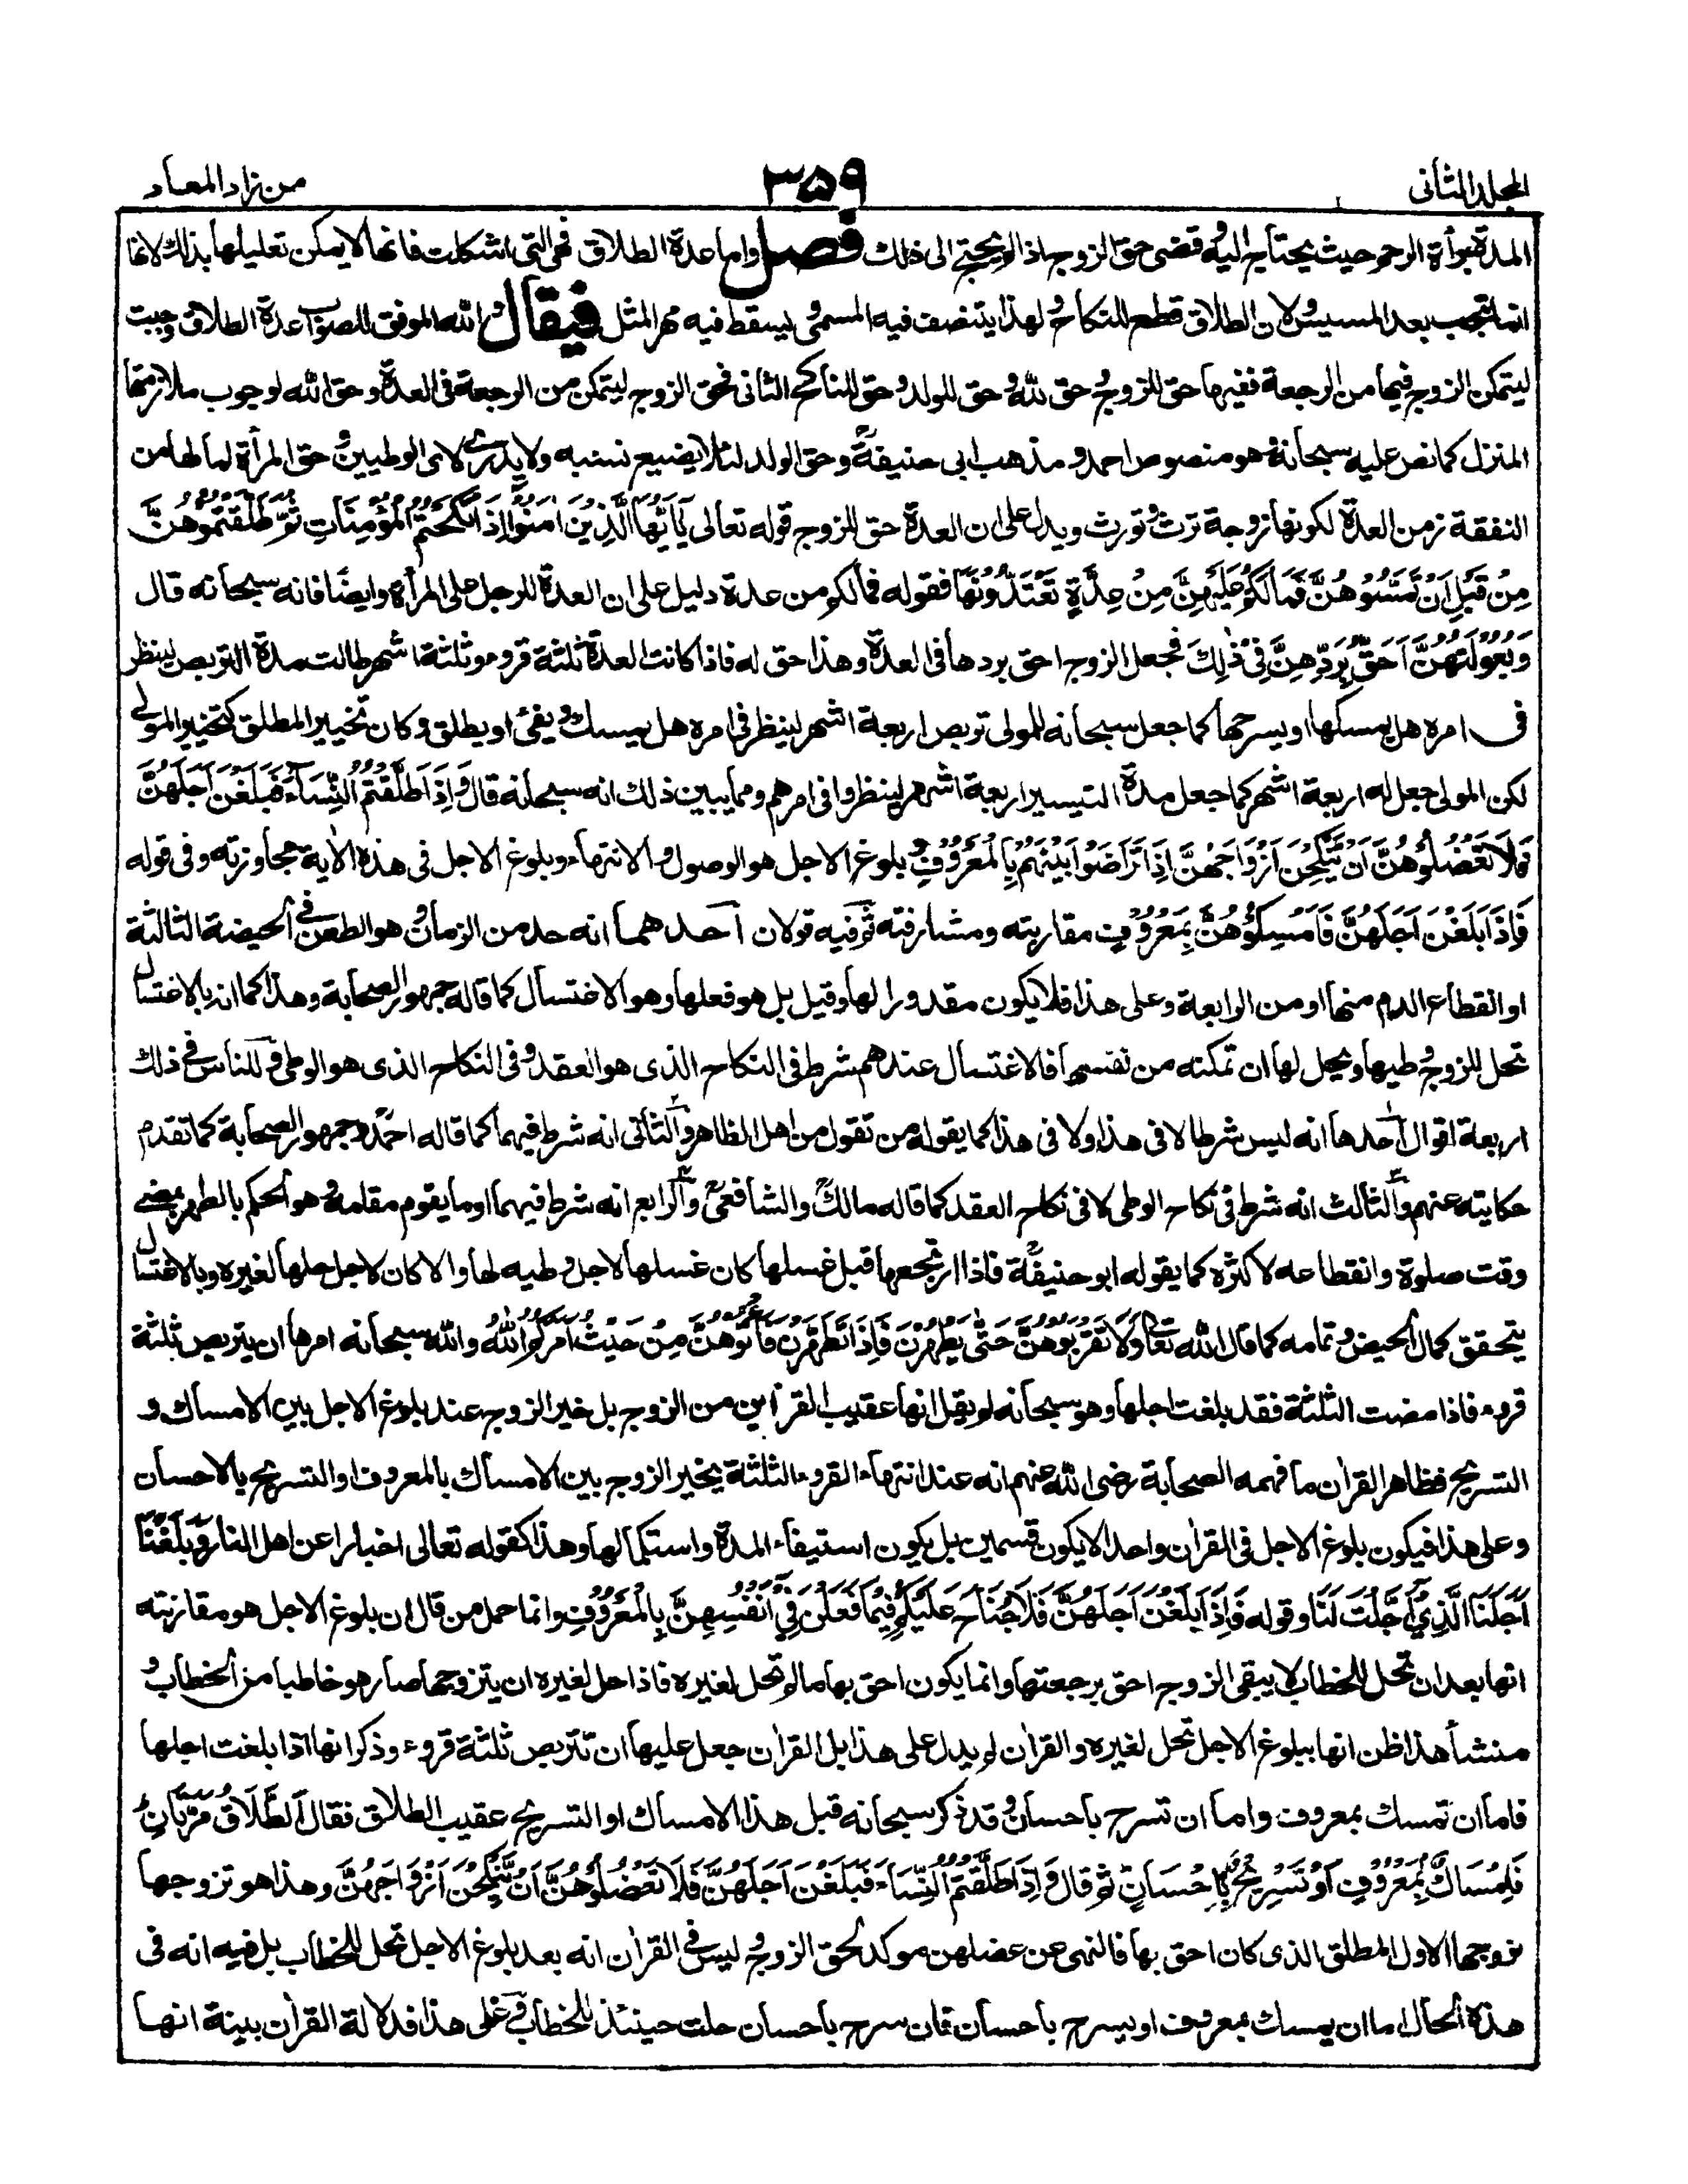 المجلد الثانى
٣٥٩
من زاد المعاد
المدة لبرأة الرحم حيث يحتاج اليه وقضى حق الزوج اذا لم يحتج الى ذلك فصل واما عدة الطلاق فهى التى اشكلت فانها لا يمكن تعليلها بذلك لانها
انما تجب بعد المسيس ولان الطلاق قطع للنكاح ولهذا يتنصف فيه المسمى ويسقط فيه مهر المثل فيقال والله الموفق للصواب عدة الطلاق وجبت
ليتمكن الزوج فيها من الرجعة ففيها حق للزوج وحق لله وحق للولد وحق للناكح الثانى فحق الزوج ليتمكن من الرجعة فى العدة وحق الله لوجوب ملازمتها
المنزل كما نص عليه سبحانه وهو منصوص احمد ومذهب ابى حنيفة وحق الولد لئلا يضيع نسبه ولا يدرى لاى الوطيين وحق المرأة لما لها من
النفقة زمن العدة لكونها زوجة ترث وتورث ويدل على ان العدة حق للزوج قوله تعالى يَآيُّهَا الَّذِيْنَ اٰمَنُوْا اِذَا نَكَحْتُمُ الْمُؤْمِنَاتِ ثُمَّ طَلَّقْتُمُوْهُنَّ
مِنْ قَبْلِ اَنْ تَمَسُّوْهُنَّ فَمَا لَكُمْ عَلَيْهِنَّ مِنْ عِدَّةٍ تَعْتَدُّوْنَهَا فقوله فما لكم من عدة دليل على ان العدة للرجل على المرأة وايضا فانه سبحانه قال
وَبُعُوْلَتُهُنَّ اَحَقُّ بِرَدِّهِنَّ فِىْ ذٰلِكَ فجعل الزوج احق بردها فى العدة وهذا حق له فاذا كانت العدة ثلثة قروء وثلثة اشهر طالت مدة التربص لينظر
فى امره هل يمسكها او يسرحها كما جعل سبحانه للمولى تربص اربعة اشهر لينظر فى امره هل يمسك ويفئ او يطلق وكان تخيير المطلق كتخيير المولى
لكن المولى جعل له اربعة اشهر كما جعل مدة التسيير اربعة اشهر لينظروا فى امرهم ومما يبين ذلك انه سبحانه قال وَاِذَا طَلَّقْتُمُ النِّسَآءَ فَبَلَغْنَ اَجَلَهُنَّ
فَلَا تَعْضُلُوْهُنَّ اَنْ يَّنْكِحْنَ اَزْوَاجَهُنَّ اِذَا تَرَاضَوْا بَيْنَهُمْ بِالْمَعْرُوْفِ وبلوغ الاجل هو الوصول والانتهاء وبلوغ الاجل فى هذه الاٰية مجاوزته وفى قوله
فَاِذَا بَلَغْنَ اَجَلَهُنَّ فَاَمْسِكُوْهُنَّ بِمَعْرُوْفٍ مقاربته ومشارفته ثم فيه قولان احدهما انه حد من الزمان وهو الطعن فى الحيضة الثالثة
او انقطاع الدم منها او من الرابعة وعلى هذا فلا يكون مقدورا لها وقيل بل هو فعلها وهو الاغتسال كما قاله جمهور الصحابة وهذا كما انه بالاغتسال
تحل للزوج وطيها ويحل لها ان تمكنه من نفسها فالاغتسال عندهم شرط فى النكاح الذى هو العقد وفى النكاح الذى هو الوطى وللناس فى ذلك
اربعة اقوال احدها انه ليس شرطا لا فى هذا ولا فى هذا كما يقوله من تقول من اهل الظاهر والثانى انه شرط فيهما كما قاله احمد وجمهور الصحابة كما تقدم
حكايته عنهم والثالث انه شرط فى نكاح الوطى لا فى نكاح العقد كما قاله مالك والشافعى والرابع انه شرط فيهما او ما يقوم مقامه وهو الحكم بالطهر بمضى
وقت صلوة وانقطاعه لاكثره كما يقوله ابو حنيفة فاذا ارتجعها قبل غسلها كان غسلها لاجل وطيه لها والا كان لاجل حلها لغيره وبالاغتسال
يتحقق كمال الحيض وتمامه كما قال الله تعالى وَلَا تَقْرَبُوْهُنَّ حَتّٰى يَطْهُرْنَ فَاِذَا تَطَهَّرْنَ فَاْتُوْهُنَّ مِنْ حَيْثُ اَمَرَكُمُ اللّٰهُ والله سبحانه امرها ان يتربص ثلثة
قروء فاذا مضت الثلثة فقد بلغت اجلها وهو سبحانه لم يقل انها عقيب القرأين من الزوج بل خير الزوج عند بلوغ الاجل بين الامساك و
التسريح فظاهر القراٰن ما فهمه الصحابة رضى الله عنهم انه عند انتهاء القروء الثلثة يخير الزوج بين الامساك بالمعروف او التسريح بالاحسان
وعلى هذا فيكون بلوغ الاجل فى القراٰن واحدا لا يكون قسمين بل يكون استيفاء المدة واستكمالها وهذا كقوله تعالى اخبارا عن اهل النار وَبَلَغْنَا
اَجَلَنَا الَّذِىْ اَجَّلْتَ لَنَا وقوله فَاِذَا بَلَغْنَ اَجَلَهُنَّ فَلَا جُنَاحَ عَلَيْكُمْ فِيْمَا فَعَلْنَ فِىْ اَنْفُسِهِنَّ بِالْمَعْرُوْفِ وانما حمل من قال ان بلوغ الاجل هو مقاربته
انها بعد ان تحل للخطاب لا يبقى الزوج احق برجعتها وانما يكون احق بها ما لم تحل لغيره فاذا حل لغيره ان يتزوجها صار هو خاطبا من الخطاب و
منشأ هذا ظن انها ببلوغ الاجل تحل لغيره والقراٰن لم يدل على هذا بل القراٰن جعل عليها ان تتربص ثلثة قروء وذكر انها اذا بلغت اجلها
فاما ان تمسك بمعروف واما ان تسرح باحسان وقد ذكر سبحانه قبل هذا الامساك او التسريح عقيب الطلاق فقال اَلطَّلَاقُ مَرَّتَانِ
فَاِمْسَاكٌ بِمَعْرُوْفٍ اَوْ تَسْرِيْحٌ بِاِحْسَانٍ ثم قال وَاِذَا طَلَّقْتُمُ النِّسَآءَ فَبَلَغْنَ اَجَلَهُنَّ فَلَا تَعْضُلُوْهُنَّ اَنْ يَّنْكِحْنَ اَزْوَاجَهُنَّ وهذا هو تزوجها
بزوجها الاول المطلق الذى كان احق بها فالنهى عن عضلهن موكد لحق الزوج وليس فى القراٰن انه بعد بلوغ الاجل تحل للخطاب بل فيه انه فى
هذه الحال اما ان يمسك بمعروف او يسرح باحسان فان سرح باحسان حلت حينئذ للخطاب وعلى هذا فدلالة القراٰن بينة انها